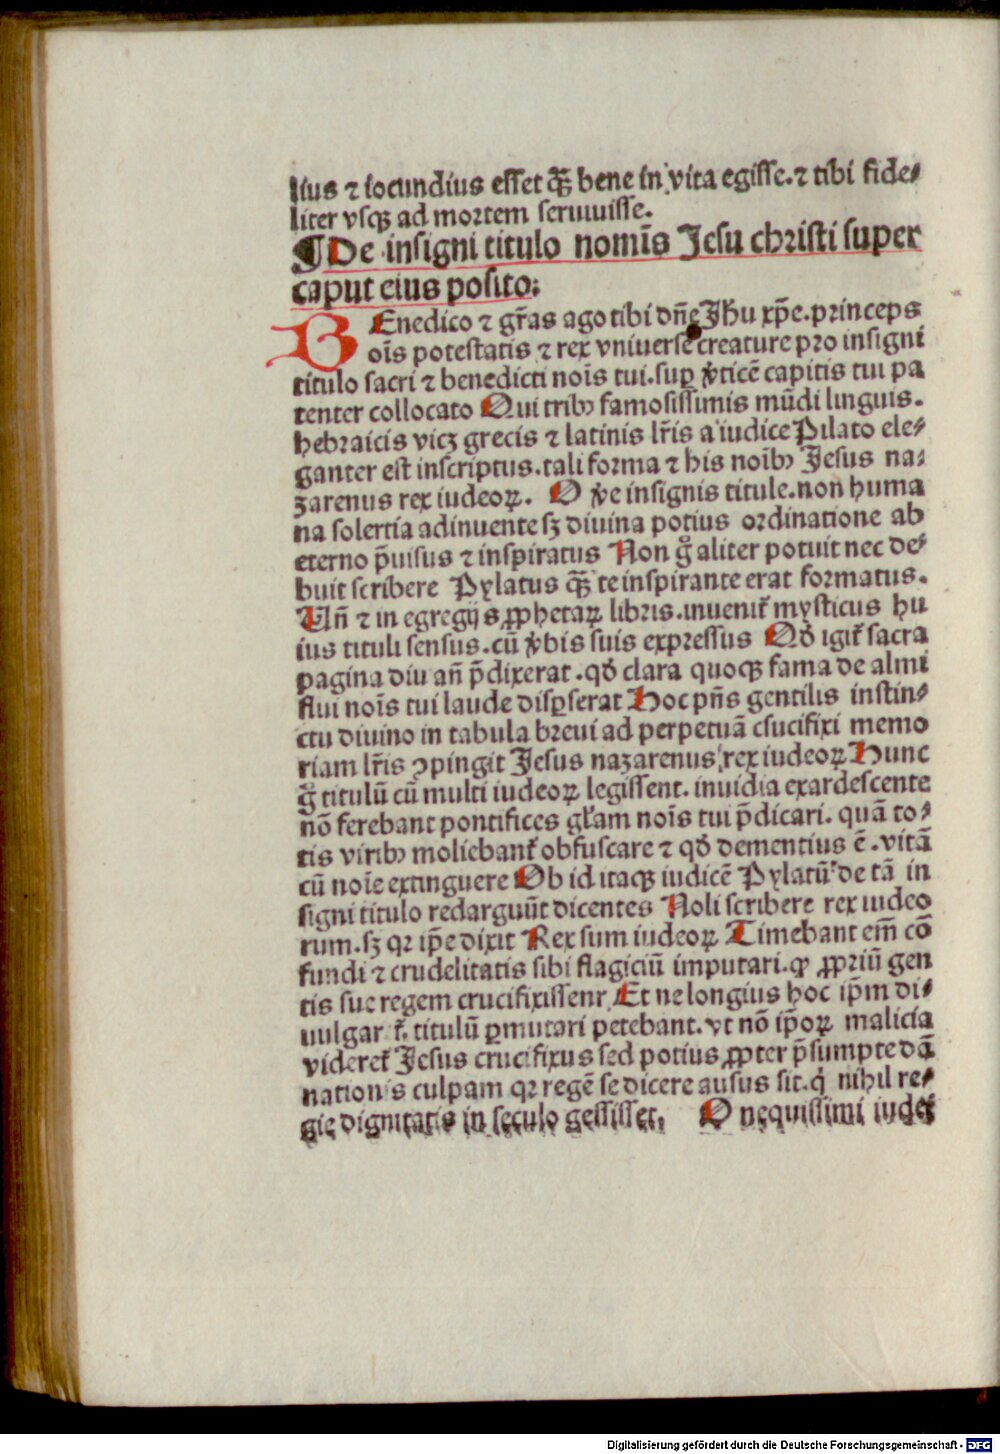 lius ⁊ iocundius esset q̃ꝫ bene in vita egisse. ⁊ tibi fide⸗
liter vsqꝫ ad mortem seruiuisse.
¶ De insigni titulo nomīs Jesu christi super
caput eius posito:
BEnedico ⁊ gr̃as ago tibi dñe Jhu xp̃e. princeps
oīs potestatis ⁊ rex vniuerse creature pro insigni
titulo sacri ⁊ benedicti noīs tui. suꝑ v̾ticē capitis tui pa
tenter collocato Qui tribꝫ famosissimis mūdi linguis.
hebraicis vicꝫ grecis ⁊ latinis lr̃is a iudice Pilato ele⸗
ganter est inscriptus. tali forma ⁊ his noībꝫ Jesus na⸗
zarenus rex iudeoꝝ. O v̾e insignis titule. non huma
na solertia adinuente sꝫ diuina potius ordinatione ab
eterno p̃uisus ⁊ inspiratus Non g̊ aliter potuit nec de⸗
buit scribere Pylatus q̃ꝫ te inspirante erat formatus.
Un̄ ⁊ in egregijs ꝓphetaꝝ libris. inuenit᷑ mysticus hu
ius tituli sensus. cū v̾bis suis expressus Qd̾ igit᷑ sacra
pagina diu an̄ p̃dixerat. qd̾ clara quoqꝫ fama de almi
flui noīs tui laude disꝑserat Hoc pn̄s gentilis instin⸗
ctu diuino in tabula breui ad perpetuā csucifixi memo
riam lr̃is ꝯpingit Jesus nazarenus rex iudeoꝝ Hunc
g̊ titulū cū multi iudeoꝝ legissent. inuidia exardescente
nō ferebant pontifices gl̃am noīs tui p̃dicari. quā to⸗
tis viribꝫ moliebant᷑ obfuscare ⁊ qd̾ dementius ē. vitā
cū noīe extinguere Ob id itaqꝫ iudicē Pylatū de tā in
signi titulo redarguūt dicentes Noli scribere rex iudeo
rum. sꝫ qꝛ ip̃e dixit Rex sum iudeoꝝ Timebant em̄ cō
fundi ⁊ crudelitatis sibi flagiciū imputari. ꝙ ꝓpriū gen
tis sue regem crucifixissent Et ne longius hoc ip̃m di⸗
uulgar t᷑. titulū ꝑmutari petebant. vt nō ip̃oꝝ malicia
videret᷑ Jesus crucifixus sed potius ꝓpter p̃sumpte dā
nationis culpam qꝛ regē se dicere ausus sit. q̇ nihil re⸗
gie dignitatis in seculo gessisset. O nequissimi iudei
Digitalisierung gefördert durch die Deutsche Forschungsgemeinschaft - DFG